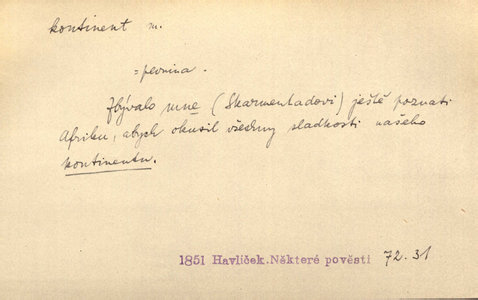 kontinent m.
= pevnina.
Zbývalo mne (Skarmentadovi) ještě poznati
Afriku, abych okusil všechny sladkosti našeho
kontinentu.
1851 Havlíček.Některé pověsti 72.31